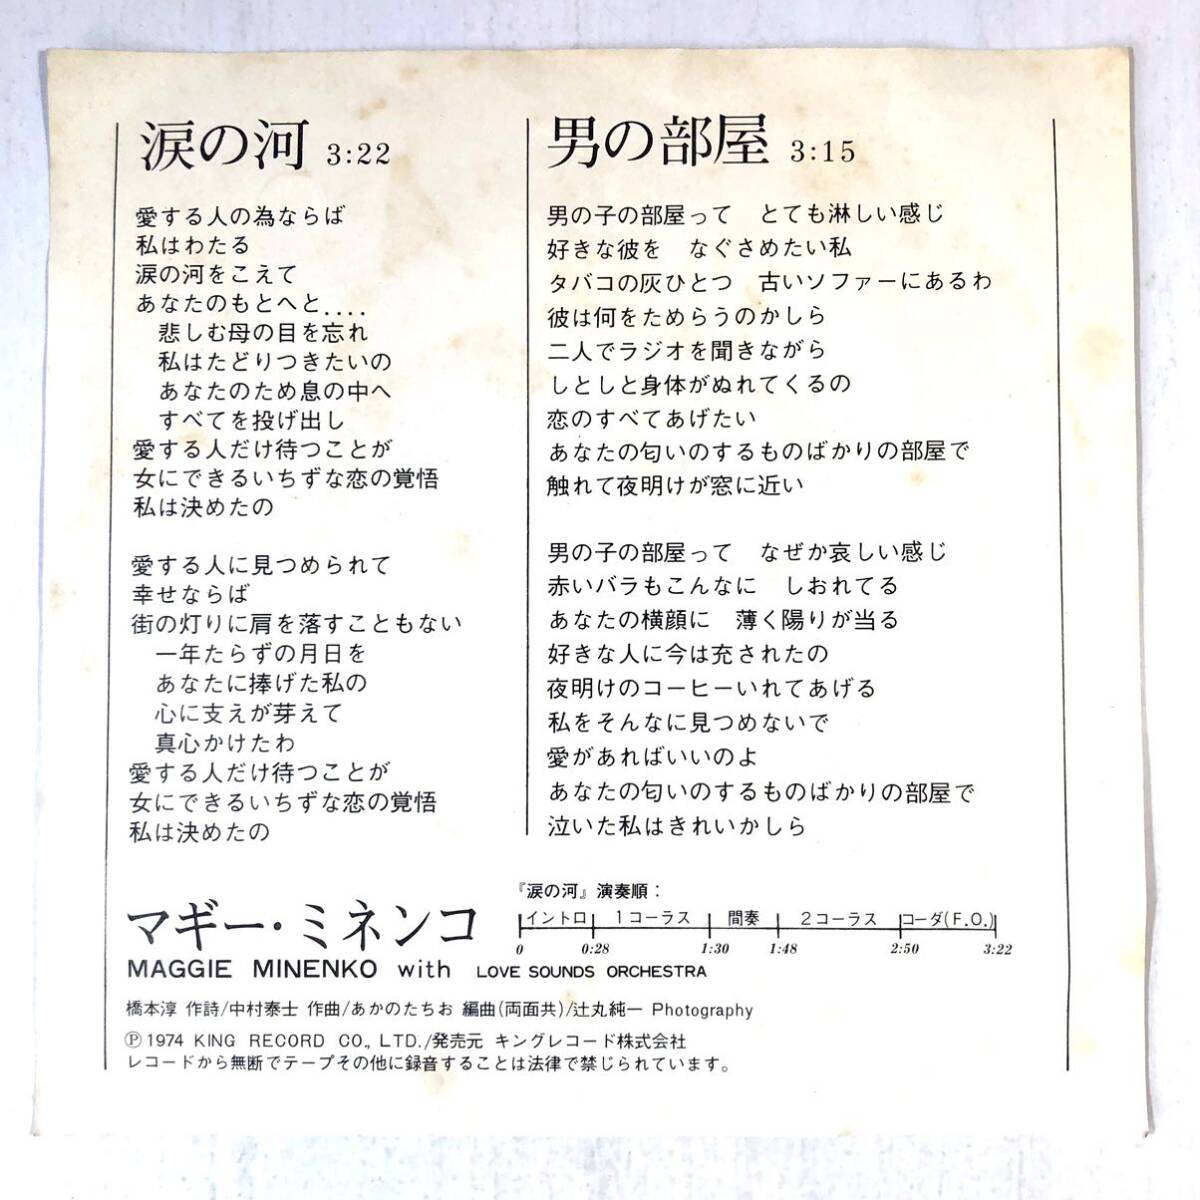 涙の河 3:22
愛する人の為ならば
私はわたる
涙の河をこえて
あなたのもとへと....
悲しむ母の目を忘れ
私はたどりつきたいの
あなたのため息の中へ
すべてを投げ出し
愛する人だけ待つことが
女にできるいちずな恋の覚悟
私は決めたの
愛する人に見つめられて
幸せならば
街の灯りに肩を落すこともない
一年たらずの月日を
あなたに捧げた私の
心に支えが芽えて
真心かけたわ
愛する人だけ待つことが
女にできるいちずな恋の覚悟
私は決めたの
男の部屋 3:15
男の子の部屋って　とても淋しい感じ
好きな彼を　なぐさめたい私
タバコの灰ひとつ　古いソファーにあるわ
彼は何をためらうのかしら
二人でラジオを聞きながら
しとしと身体がぬれてくるの
恋のすべてあげたい
あなたの匂いのするものばかりの部屋で
触れて夜明けが窓に近い
男の子の部屋って　なぜか哀しい感じ
赤いバラもこんなに　しおれてる
あなたの横顔に　薄く陽りが当る
好きな人に今は充されたの
夜明けのコーヒーいれてあげる
私をそんなに見つめないで
愛があればいいのよ
あなたの匂いのするものばかりの部屋で
泣いた私はきれいかしら
マギー・ミネンコ
MAGGIE MINENKO with LOVE SOUNDS ORCHESTRA
『涙の河』演奏順：
イントロ 1コーラス 間奏 2コーラス コーダ(F.O.)
0 0:28 1:30 1:48 2:50 3:22
橋本淳 作詩/中村泰士 作曲/あかのたちお 編曲(両面共)/辻丸純一 Photography
Ⓟ1974 KING RECORD CO., LTD./発売元 キングレコード株式会社
レコードから無断でテープその他に録音することは法律で禁じられています。